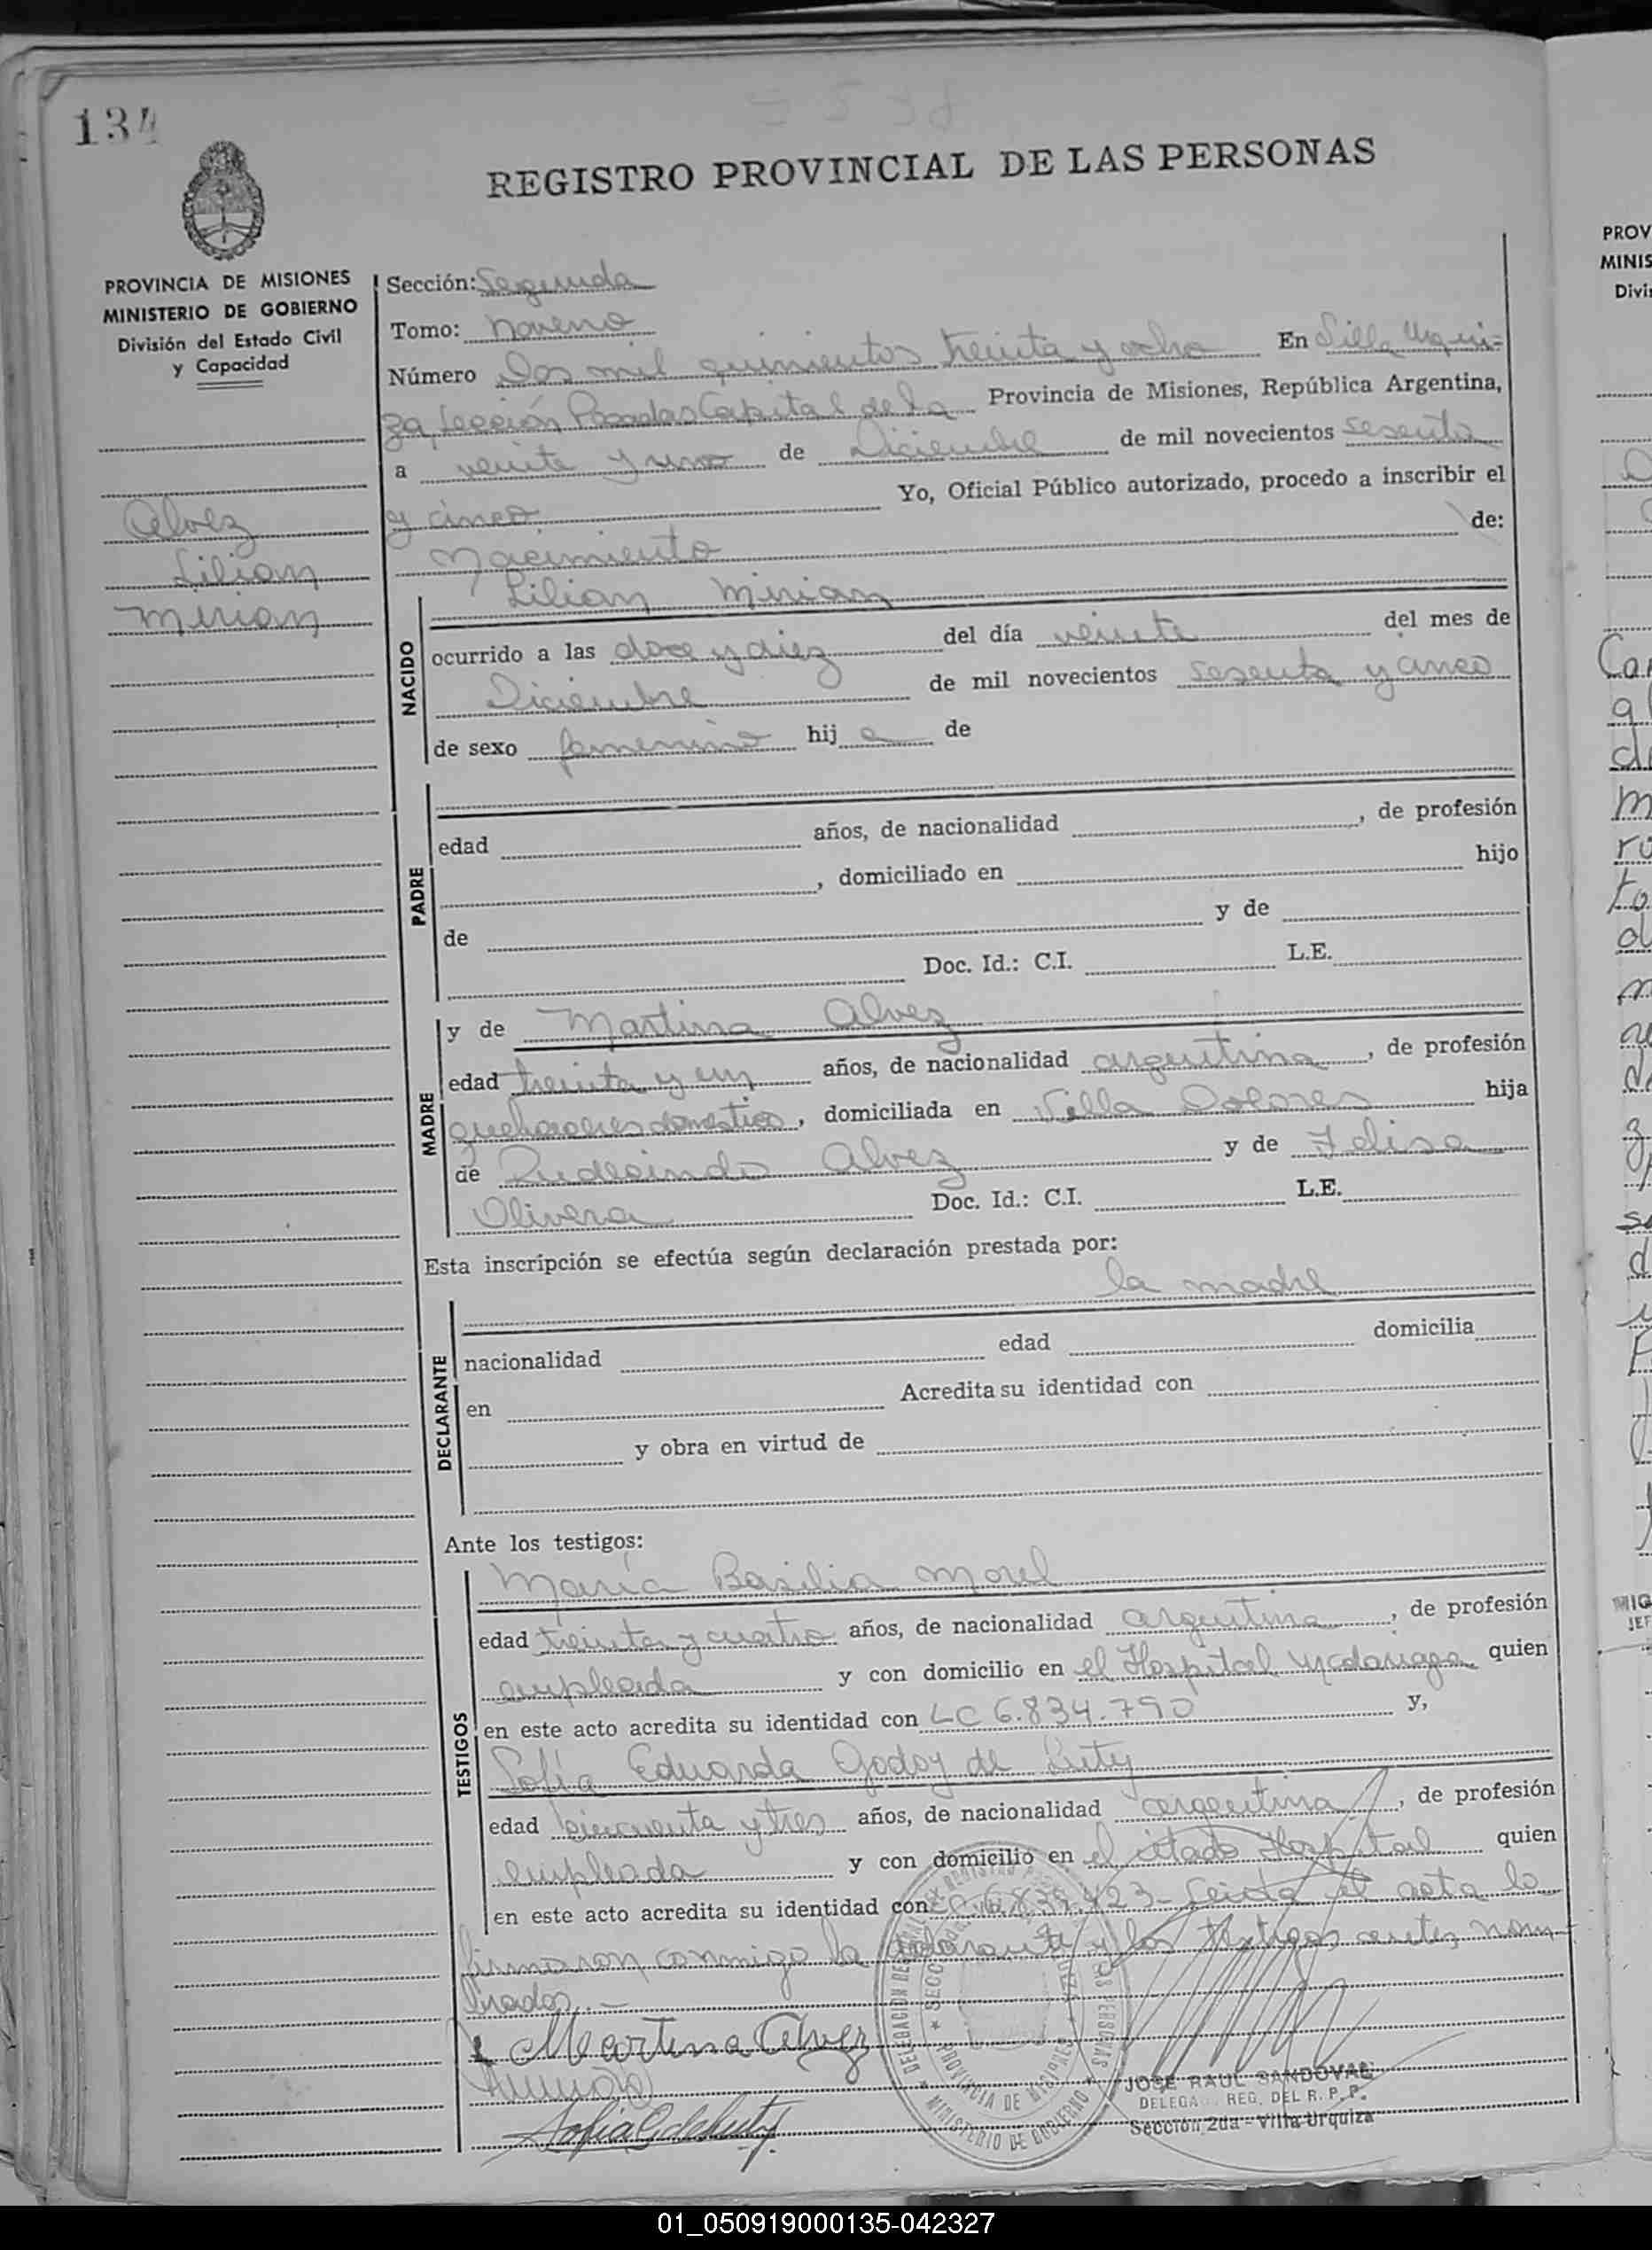 134
REGISTRO PROVINCIAL DE LAS PERSONAS
PROVINCIA DE MISIONES
MINISTERIO DE GOBIERNO
División del Estado Civil
y Capacidad
Alvez
Lilian
Mirian
Sección: Segunda
Tomo: noveno
Número Dos mil quinientos treinta y ocho En Villa Urqui-
za, Sección Posadas Capital de la Provincia de Misiones, República Argentina,
a veinte y uno de Diciembre de mil novecientos sesenta
y cinco Yo, Oficial Público autorizado, procedo a inscribir el
Nacimiento de:
NACIDO
Lilian Mirian
ocurrido a las doce y diez del día veinte del mes de
Diciembre de mil novecientos sesenta y cinco
de sexo femenino hij a de
PADRE
edad años, de nacionalidad , de profesión
, domiciliado en hijo
de y de
Doc. Id.: C.I. L.E.
MADRE
y de Martina Alvez
edad treinta y un años, de nacionalidad argentina, de profesión
quehaceres domestico, domiciliada en Villa Dolores hija
de Rudecindo Alvez y de Felisa
Olivera Doc. Id.: C.I. L.E.
Esta inscripción se efectúa según declaración prestada por:
la madre
DECLARANTE
nacionalidad edad domicilia
en Acredita su identidad con
y obra en virtud de
Ante los testigos:
TESTIGOS
María Basilia Morel
edad treinta y cuatro años, de nacionalidad argentina, de profesión
empleada y con domicilio en el Hospital Madariaga quien
en este acto acredita su identidad con LC 6.834.790 y,
Sofía Eduarda Godoy de Luty
edad cincuenta y tres años, de nacionalidad argentina, de profesión
empleada y con domicilio en el citado Hospital quien
en este acto acredita su identidad con Leida el acta lo
firmaron conmigo la declarante y los testigos antes nom
brados.-
Martina Alvez
JOSE RAUL SANDOVAL
DELEGA REG. DEL R. P. P.
Sección 2da - Villa Urquiza
PROVINCIA DE MISIONES
MINISTERIO DE GOBIERNO
01_050919000135-042327